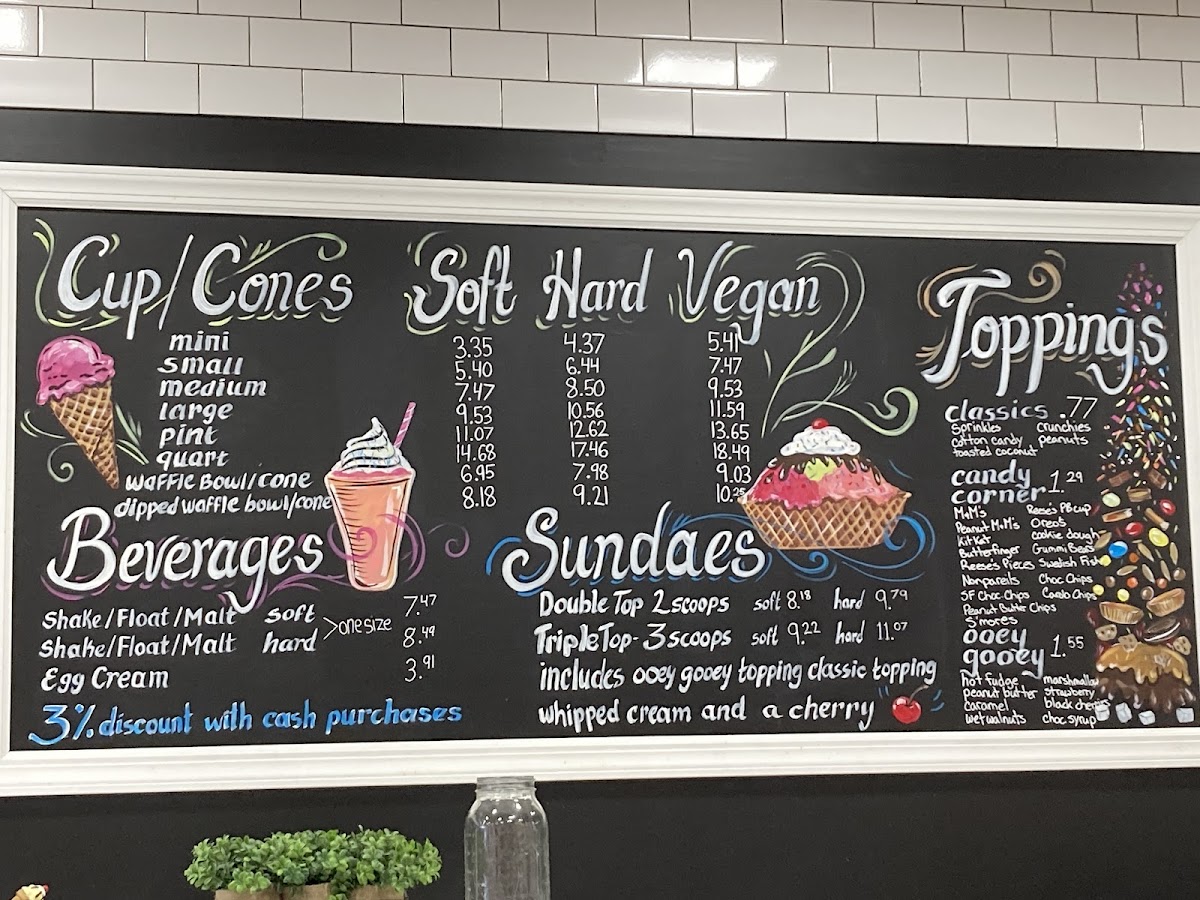 Cup/Cones Soft Hard Vegan
mini 3.35 4.37 5.41
small 5.40 6.44 7.47
medium 7.47 8.50 9.53
large 9.53 10.56 11.59
pint 11.07 12.62 13.65
quart 14.68 17.46 18.49
waffle Bowl/cone 6.95 7.98 9.03
dipped waffle bowl/cone 8.18 9.21 10.25
Beverages
Shake/Float/Malt soft 7.47
>one size
Shake/Float/Malt hard 8.49
Egg Cream 3.91
3% discount with cash purchases
Sundaes
Double Top 2 scoops soft 8.18 hard 9.79
Triple Top - 3 scoops soft 9.22 hard 11.07
includes ooey gooey topping classic topping
whipped cream and a cherry
Toppings
classics .77
Sprinkles crunchies
cotton candy peanuts
toasted coconut
candy
corner 1.29
M&M's Reese's PB cup
Peanut M&M's Oreos
Kit Kat cookie dough
Butterfinger Gummi Bears
Reese's Pieces Swedish Fish
Nonpareils Choc Chips
SF Choc Chips Carob Chips
Peanut Butter Chips
S'mores
ooey
gooey 1.55
hot fudge marshmallow
peanut butter strawberry
caramel black cherries
wet walnuts choc syrup